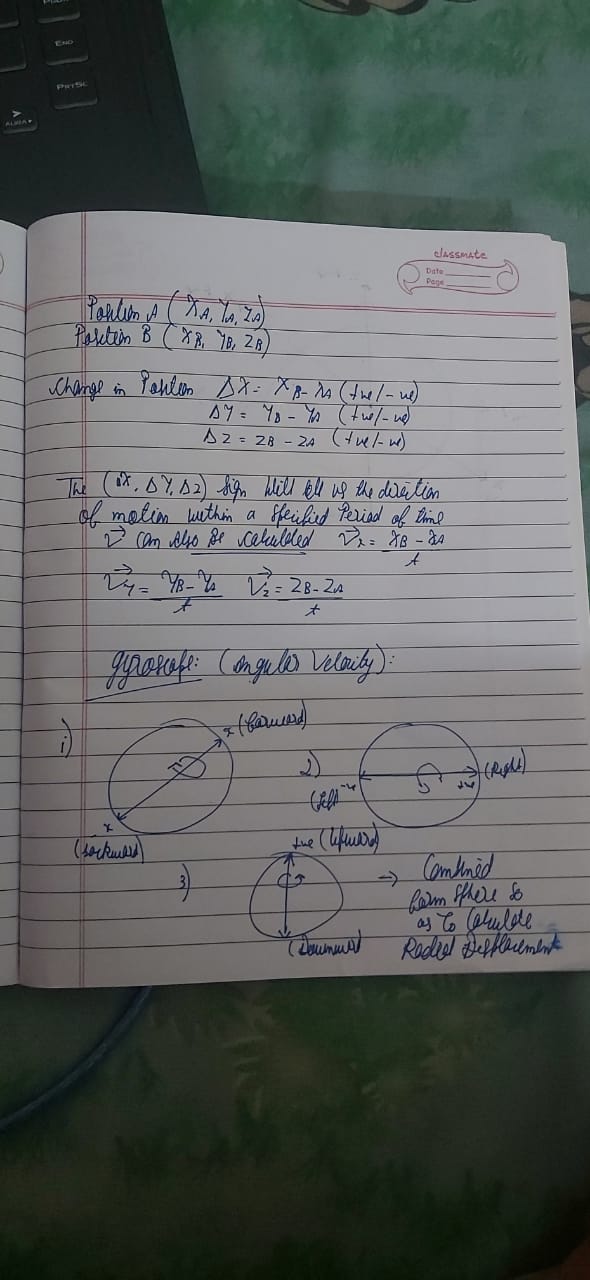 END
PRTSC
classmate
Date
Page
Position A ( XA, YA, ZA)
Position B ( XB, YB, ZB)
Change in Position ΔX = XB - XA (+ve/-ve)
ΔY = YB - YA (+ve/-ve)
ΔZ = ZB - ZA (+ve/-ve)
The (ΔX, ΔY, ΔZ) sign will tell us the direction
of motion within a specified Period of time
V⃗ can also be calculated V⃗x = XB - XA / t
V⃗y = YB - YA / t V⃗z = ZB - ZA / t
gyroscope: (angular Velocity):
1)
x (forward)
x
(backward)
2)
(left -ve
+ve (Right)
3)
+ve (upward)
(Downward
→ Combined
form sphere so
as to Calculate
Radial Displacement